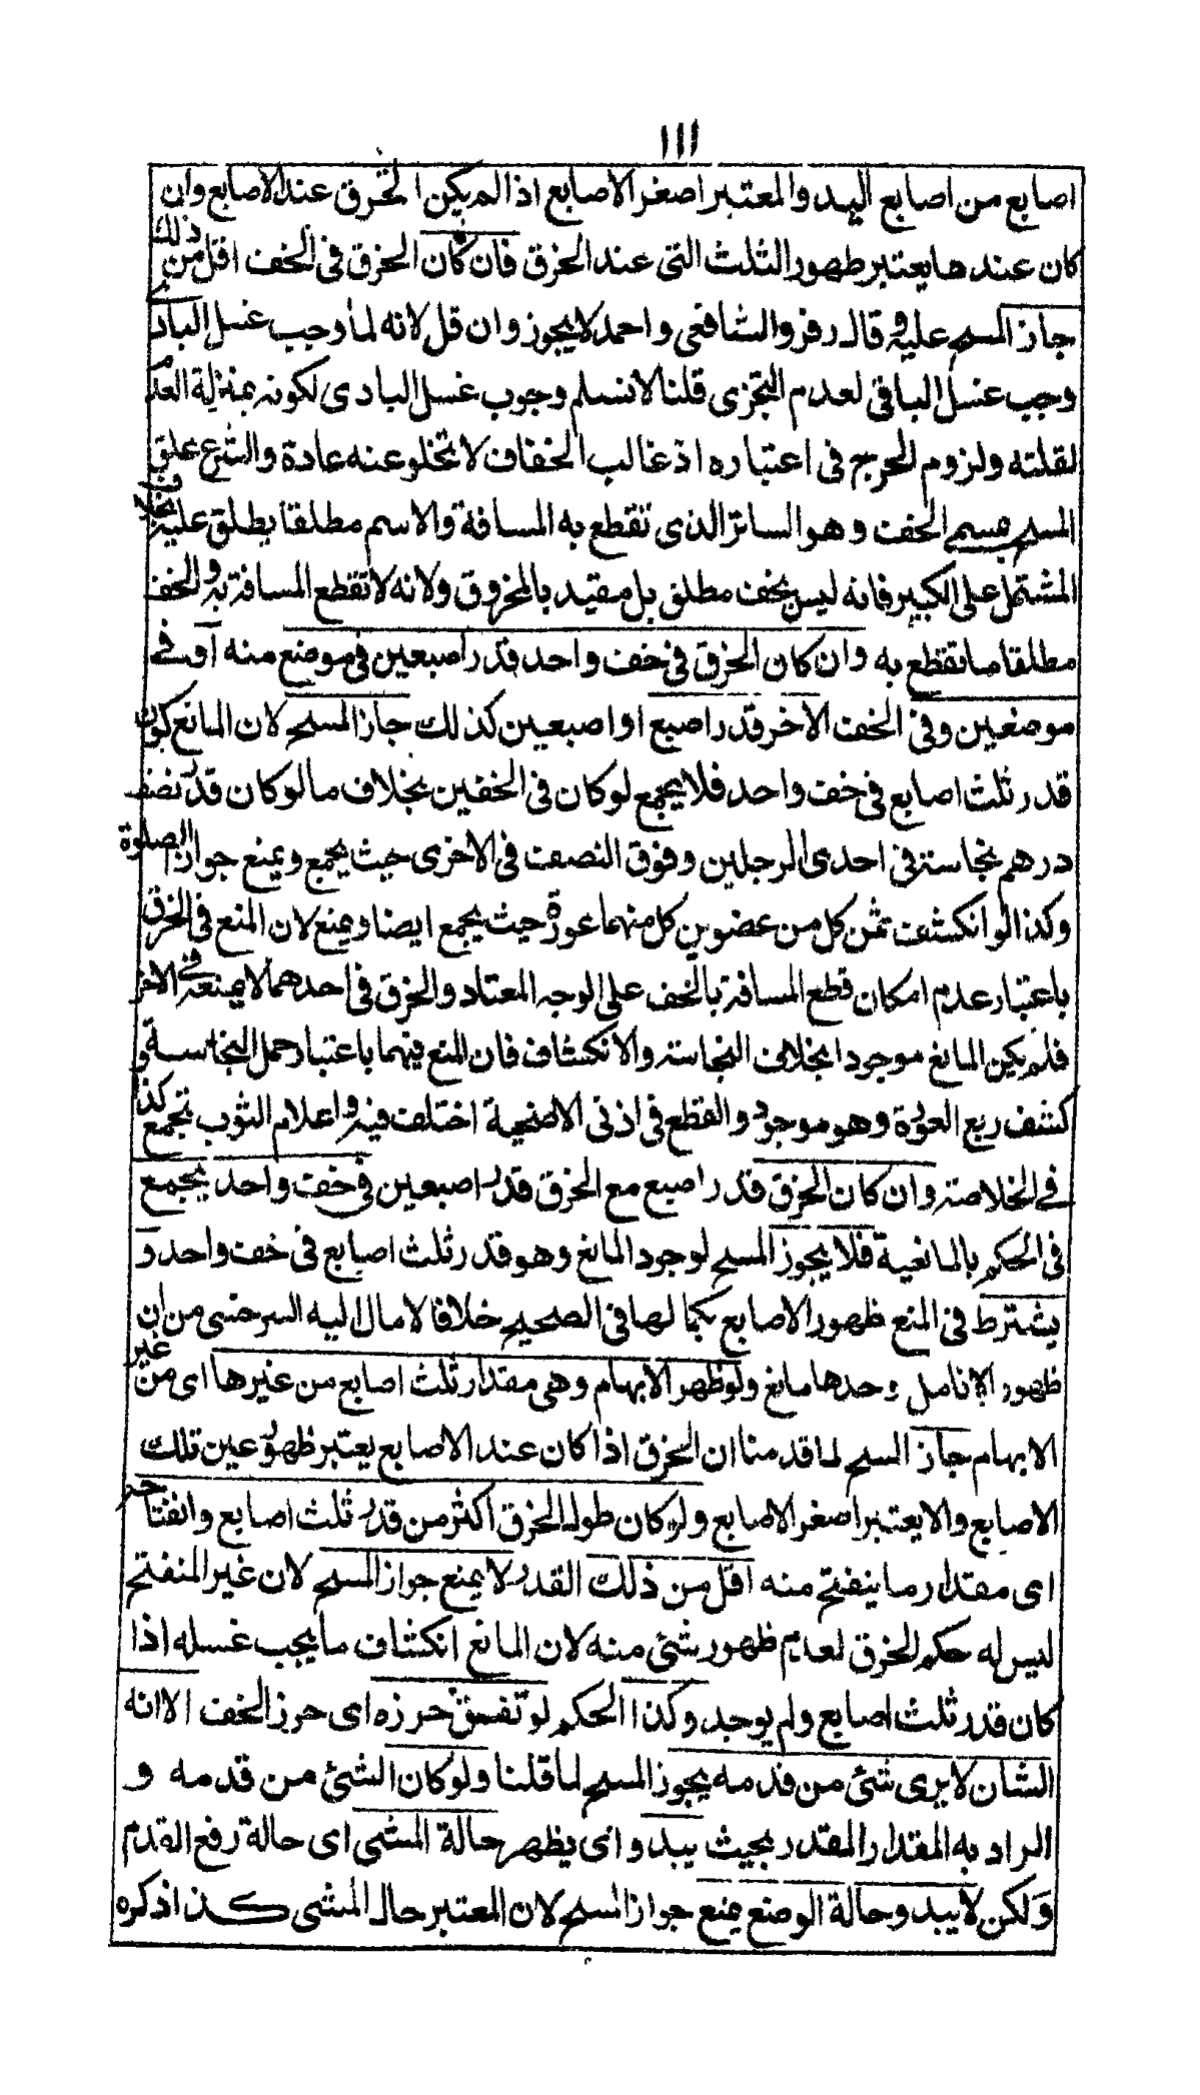 ١١١
اصابع من اصابع اليد والمعتبر اصغر الاصابع اذا لم يكن الخرق عند الاصابع وان
كان عندها يعتبر ظهور الثلث التى عند الخرق فان كان الخرق فى الخف اقل من ذلك
جاز المسح عليه وقال زفر والشافعى واحمد لا يجوز وان قل لانه لما وجب غسل البادى
وجب غسل الباقى لعدم التجزى قلنا لا نسلم وجوب غسل البادى لكونه بمنزلة العدم
لقلته ولزوم الحرج فى اعتباره اذ غالب الخفاف لا تخلو عنه عادة والشرع علق
المسح بمسمى الخف وهو الساتر الذى تقطع به المسافة والاسم مطلقا يطلق عليه بخلاف
المشتمل على الكبير فانه ليس بخف مطلق بل مقيد بالمخروق ولانه لا تقطع المسافة به والخف
مطلقا ما تقطع به وان كان الخرق فى خف واحد قدر اصبعين فى موضع منه او فى
موضعين وفى الخف الاخر قدر اصبع او اصبعين كذلك جاز المسح لان المانع كون
قدر ثلث اصابع فى خف واحد فلا يجمع لو كان فى الخفين بخلاف ما لو كان قدر نصف
درهم نجاسة فى احدى الرجلين وفوق النصف فى الاخرى حيث يجمع ويمنع جواز الصلوة
وكذا لو انكشفت ثمن كل من عضوين كل منهما عورة حيث يجمع ايضا ويمنع لان المنع فى الخرق
باعتبار عدم امكان قطع المسافة بالخف على الوجه المعتاد والخرق فى احدهما لا يمنعه فى الاخر
فلم يكن المانع موجودا بخلاف النجاسة والانكشاف فان المنع فيهما باعتبار حمل النجاسة و
كشف ربع العورة وهو موجود والقطع فى اذنى الاضحية اختلف فيه واعلام الثوب تجمع كذا
فى الخلاصة وان كان الخرق قدر اصبع مع الخرق قدر اصبعين فى خف واحد يجمع
فى الحكم بالمانعية فلا يجوز المسح لوجود المانع وهو قدر ثلث اصابع فى خف واحد و
يشترط فى المنع ظهور الاصابع بكمالها فى الصحيح خلافا لا مال اليه السرخسى من ان
ظهور الانامل وحدها مانع ولو ظهر الابهام وهى مقدار ثلث اصابع من غيرها اى من غير
الابهام جاز السح لما قدمنا ان الخرق اذا كان عند الاصابع يعتبر ظهور عين تلك
الاصابع والا يعتبر اصغر الاصابع ولو كان طول الخرق اكثر من قدر ثلث اصابع وانفتاحه
اى مقدار ما ينفتح منه اقل من ذلك القدر لا يمنع جواز المسح لان غير المنفتح
ليس له حكم الخرق لعدم ظهور شئ منه لان المانع انكشاف ما يجب غسله اذا
كان قدر ثلث اصابع ولم يوجد وكذا الحكم لو تفتق خرزه اى خرز الخف الا انه
الشان لا يرى شئ من قدمه يجوز المسح لما قلنا ولو كان الشئ من قدمه و
المراد به المقدار المقدر بحيث يبدو اى يظهر حالة المشى اى حالة رفع القدم
ولكن لا يبدو حالة الوضع يمنع جواز المسح لان المعتبر حال المشى كذا ذكره